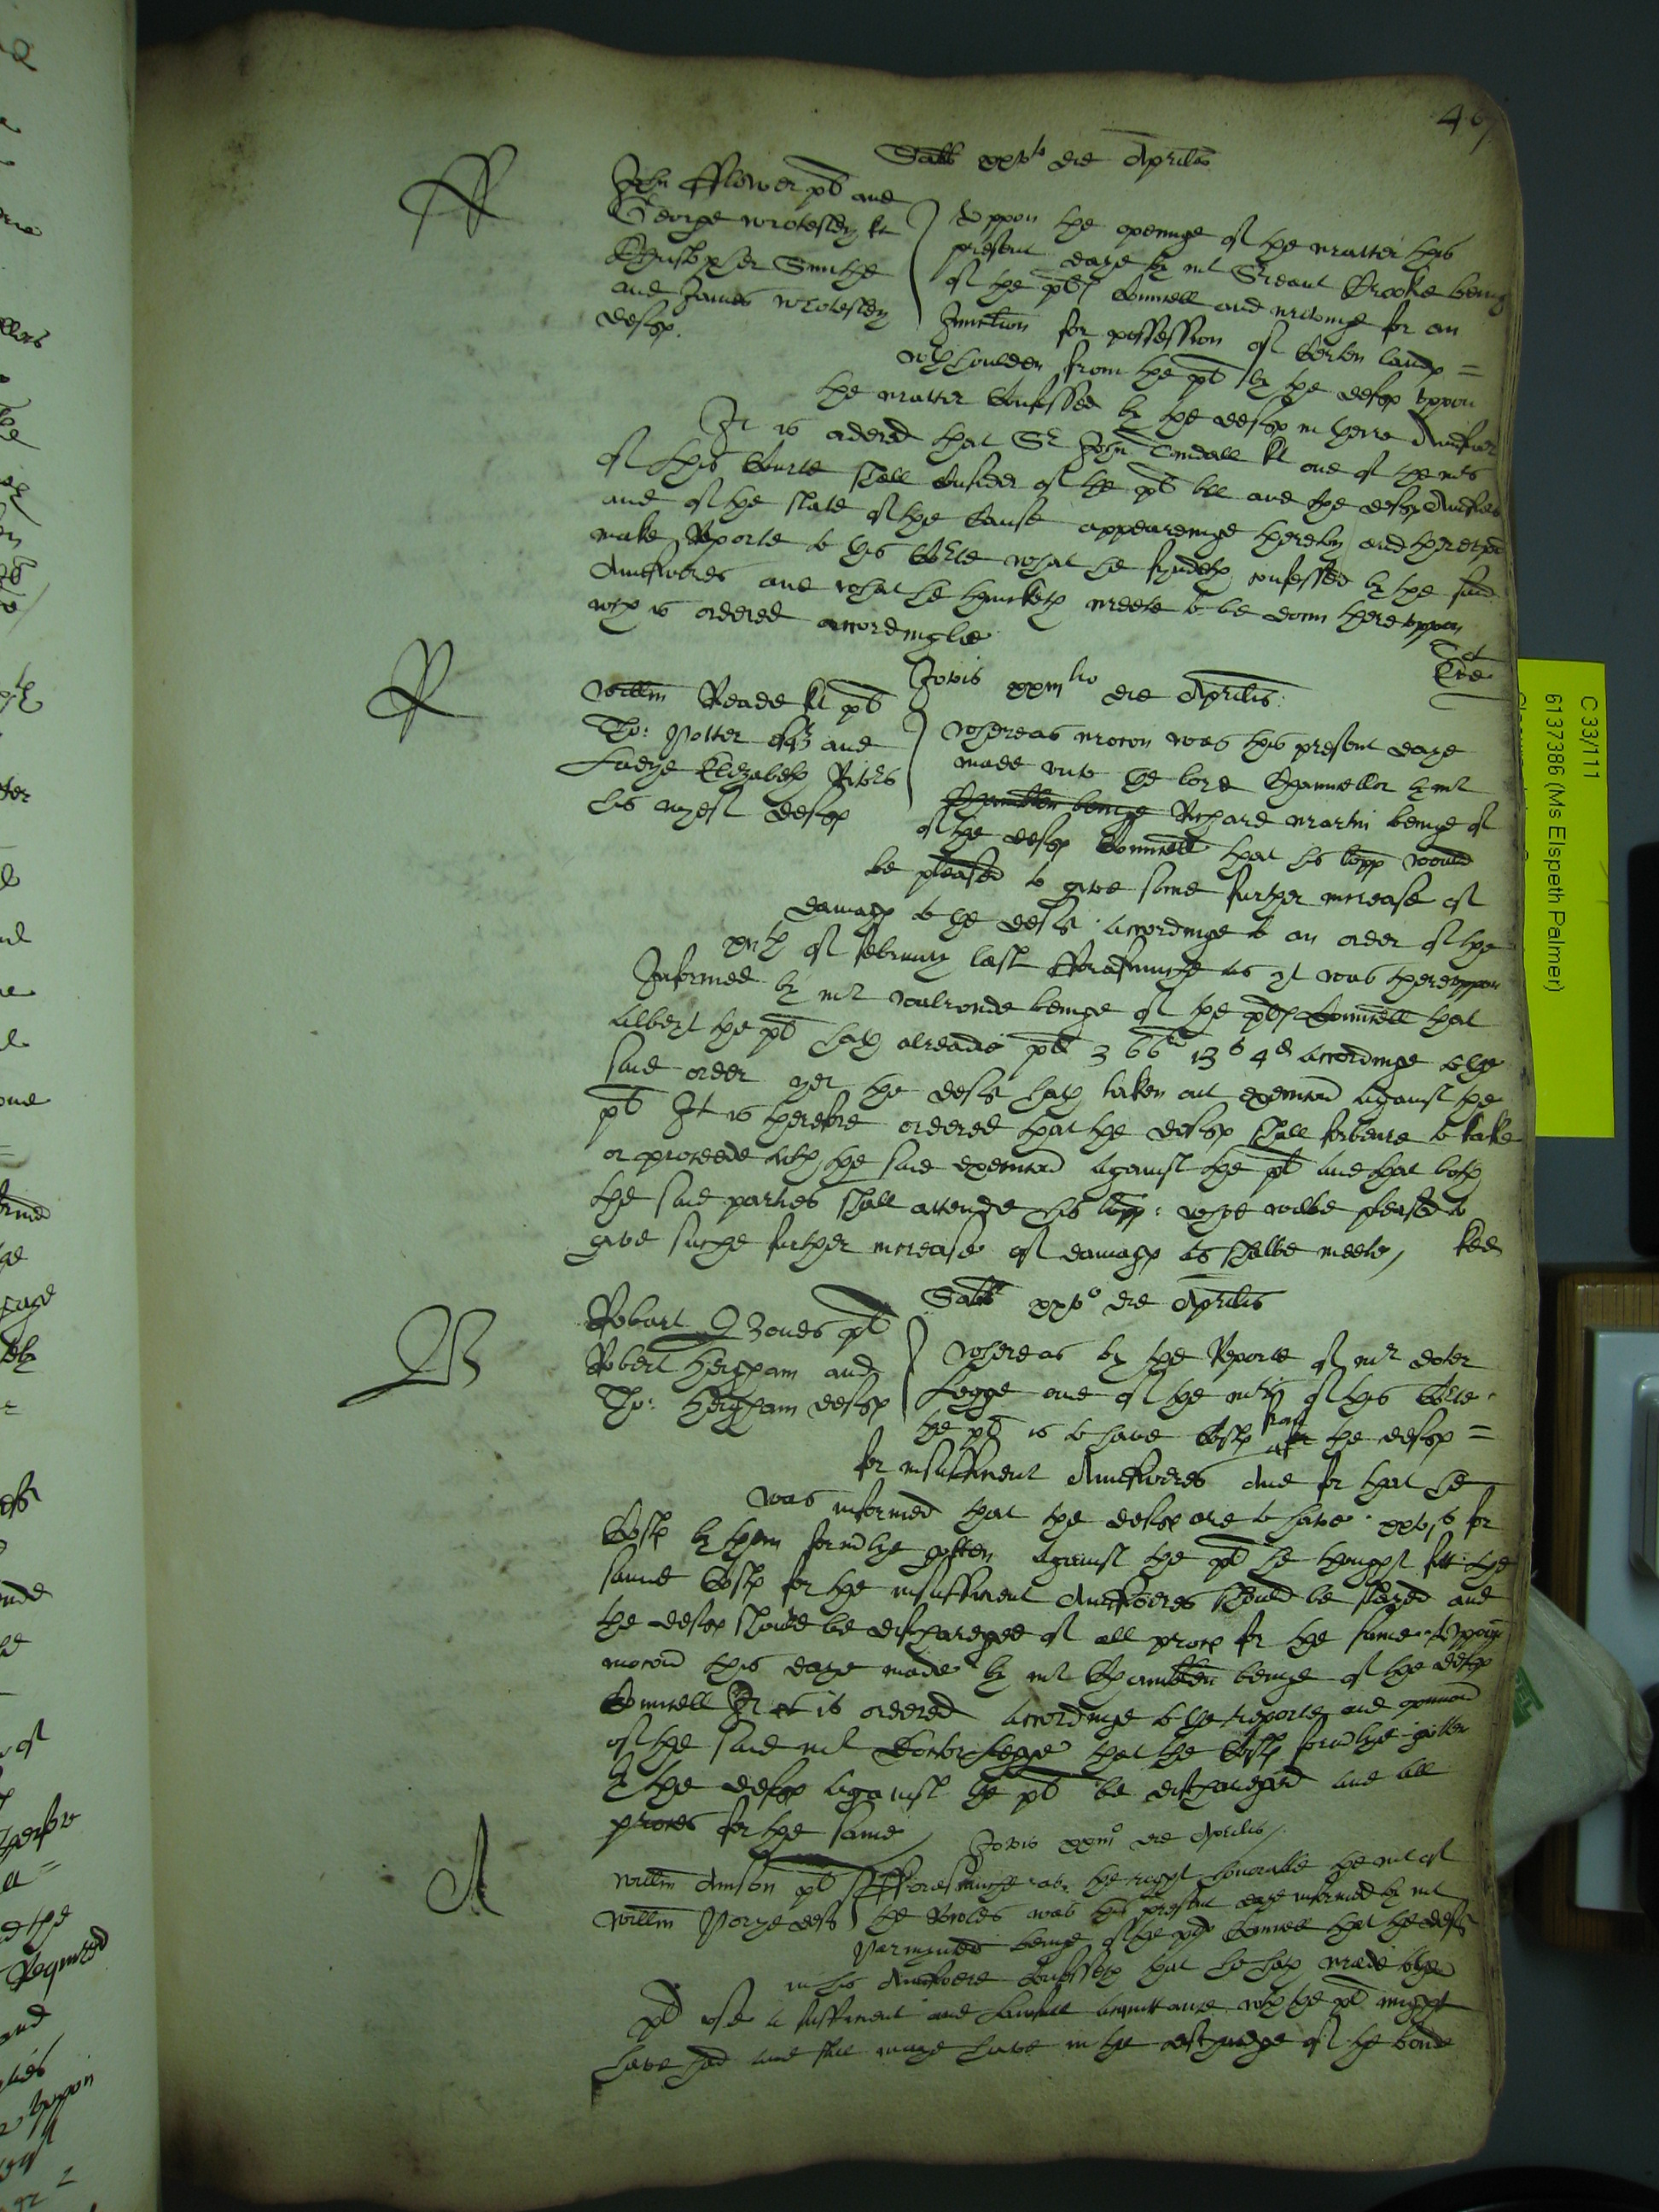 Sabti xxvto die Aprilis
John Fflower plt and
George wrotesley kt
Christopher Smithe
and James wrotesley
deftes.
Vppon the openinge of the matter this
present daye by mr Sreant Crooke being
of the pltes Councell and movinge for an
Iniunction for possession of Certen landes =
wthhoulden from the plt by the deftes vppon
the matter Confessed by the deftes in there Answer
It is ordered that Sr John Tindall kt one of the mrs
of this Courte shall Consider of the plt bill and the deftes Answers
and of the state of the Cause appearinge thereby and therevpon
make Reporte to this Corte what he fyndeth confessed by the said
Answeres and what he thincketh meete to be donn therevppon
wch is ordered accordinglie
Jovis xxiijtio die Aprilis
Willm Reade kt plt
Tho: Potter esqr and
Ladye Elizabeth Riches
his wyef deftes
Whereas mocon was this present daye
made vnto the lord Chauncellor by mr
Chamberlen beinge Richard martin beinge of
of the deftes Councell that his lopp would
be pleased to give some further increase of
damages to the defts accordinge to an order of the
xijth of february last fforasmuche as yt was therevppon
Informed by mr walronde beinge of the pltes Councell that
albeyt the plt hath alreadie pd 366li 13s 4d accordinge to the
said order yet the defts hath taken out execucon against the
plt It is therefore ordered that the deftes shall forbeare to take
or proceede wth the said execucon against the plt and that both
the said parties shall attende his lopp: whoe wilbe pleased to
give suche further increase of damages as shalbe meete /
Sabti xxvo die Aprilis
Robart Jones plt
Robert Heigham and
Tho: Heigham deftes
Whereas by the Reporte of mr doctor
Legge one of the mrs of this Corte
the plt is to have Costes from the deftes =
for insufficient Answeres and for that he
was informed that the deftes are to have xxvs for
Costes by them formerlye gotten against the plt he thought fitt the
same Costes for the insufficient Answeres should be stayed and
the deftes should be discharged of all proces for the same Vppon
mocon this daye made by mr Chamberlen beinge of the deftes
Councell It is ordered accordinge to the reporte and opinion
of the said mr Doctor Legge that the Costes formerlye gotten
by the deftes against the plt be discharged and all
proces for the same /
Jovis xxiijo die Aprilis /
Willm Anson plt
Willm Porye deft
Fforasmuche as the right honorable the mr of
the Rowles was this present daye informed by mr
beinge of the plts Councell that the deft
in his Answere Confesseth that he hath made to the
plt vse a sufficient and lawfull acquittance wch the plt might
have had and still maye have in the dischardge of the bonde
C 33/111
6137386 (Ms Elspeth Palmer)